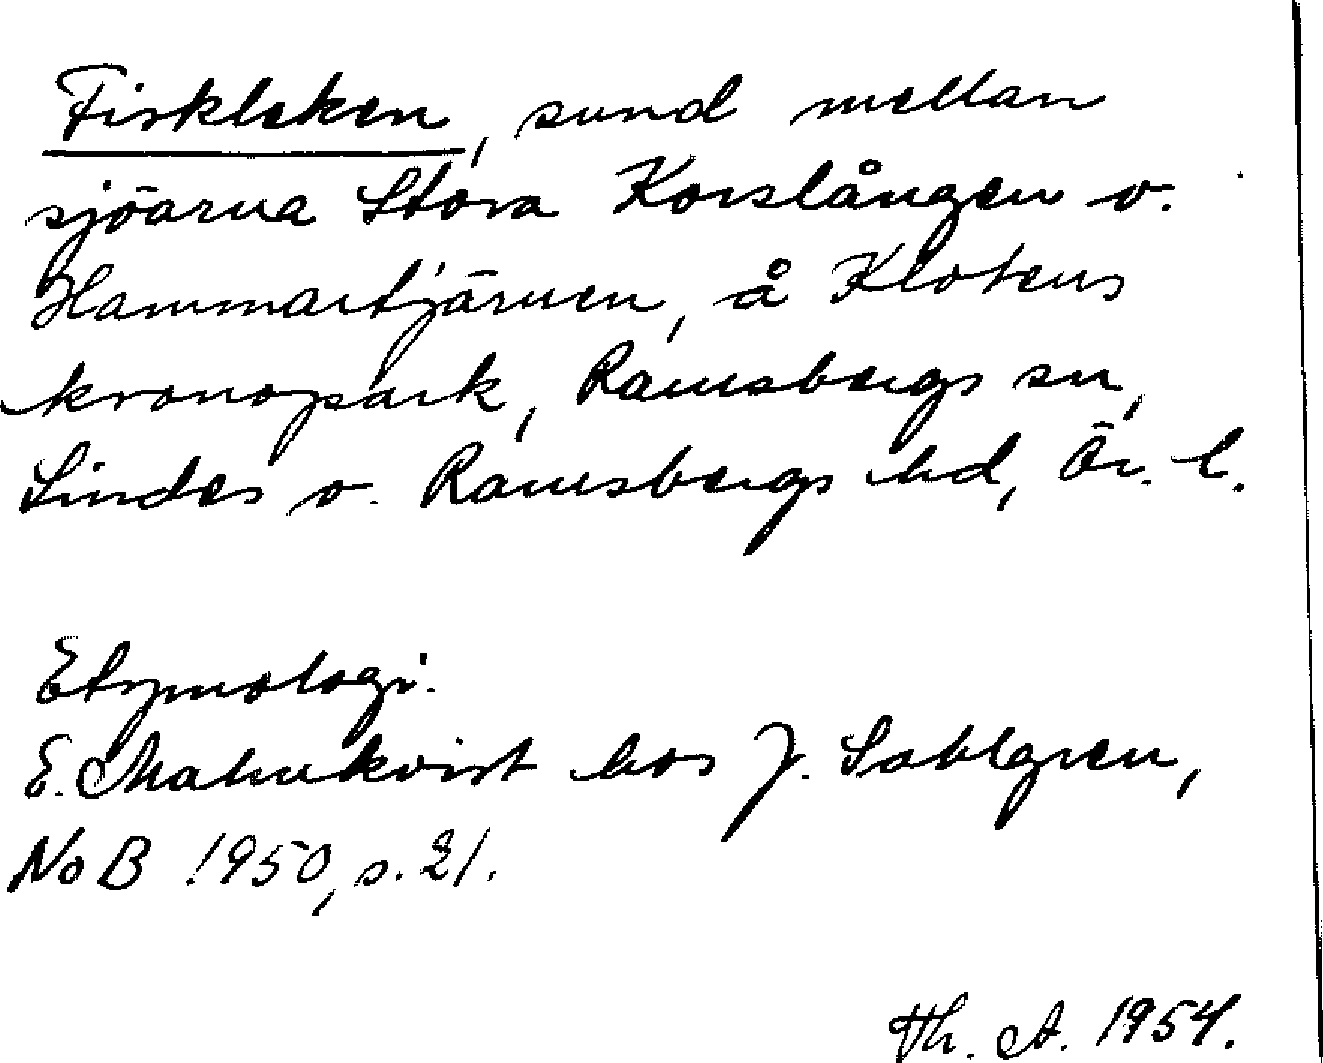 Fiskleken, sund mellan
sjöarna Stora Korslången o.
Hammartjärnen, å Klotens
kronopark, Ramsbergs sn,
Lindes o. Ramsbergs hd, Ör. l.
Etymologi.
E. Malmkvist hos J. Sahlgren,
NoB 1950, s. 21.
Th. A. 1954.